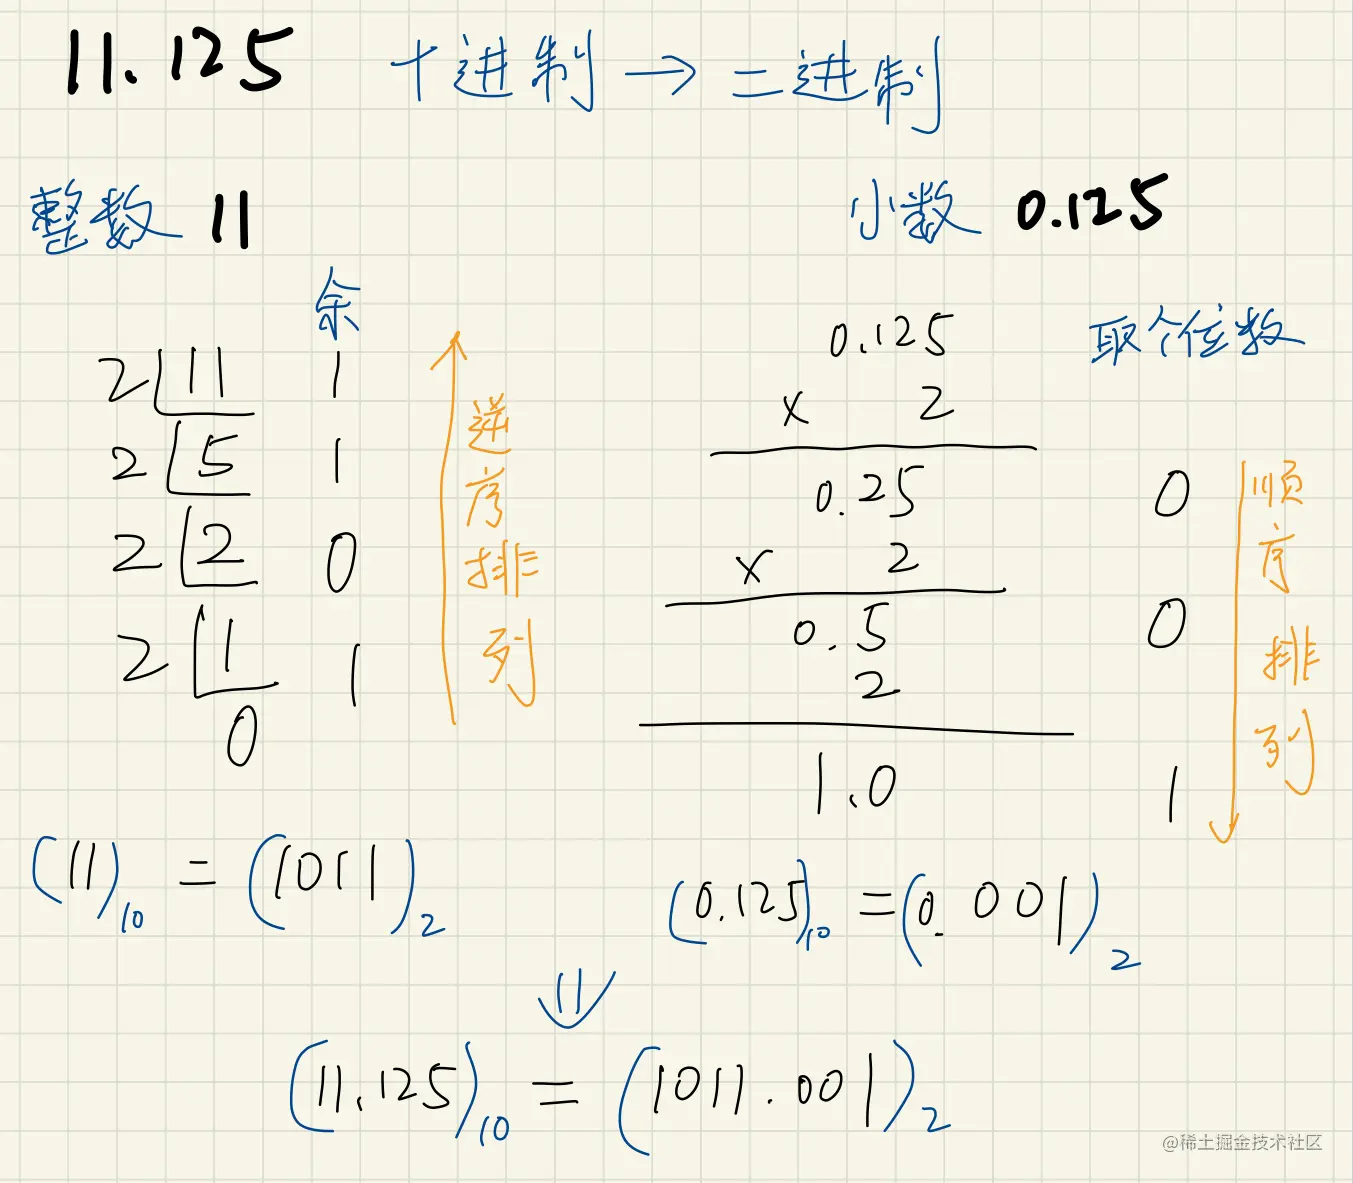 11.125 十进制 → 二进制
整数 11
余
2 11 1
2 5 1
2 2 0
2 1 1
0
逆序排列
(11)10 = (1011)2
小数 0.125
取个位数
0.125
× 2
0.25 0
× 2
0.5 0
2
1.0 1
顺序排列
(0.125)10 = (0.001)2
⇓
(11.125)10 = (1011.001)2
@稀土掘金技术社区